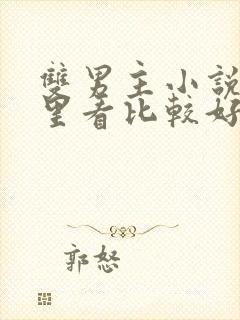 雙男主小說
里看比較好
郭怒